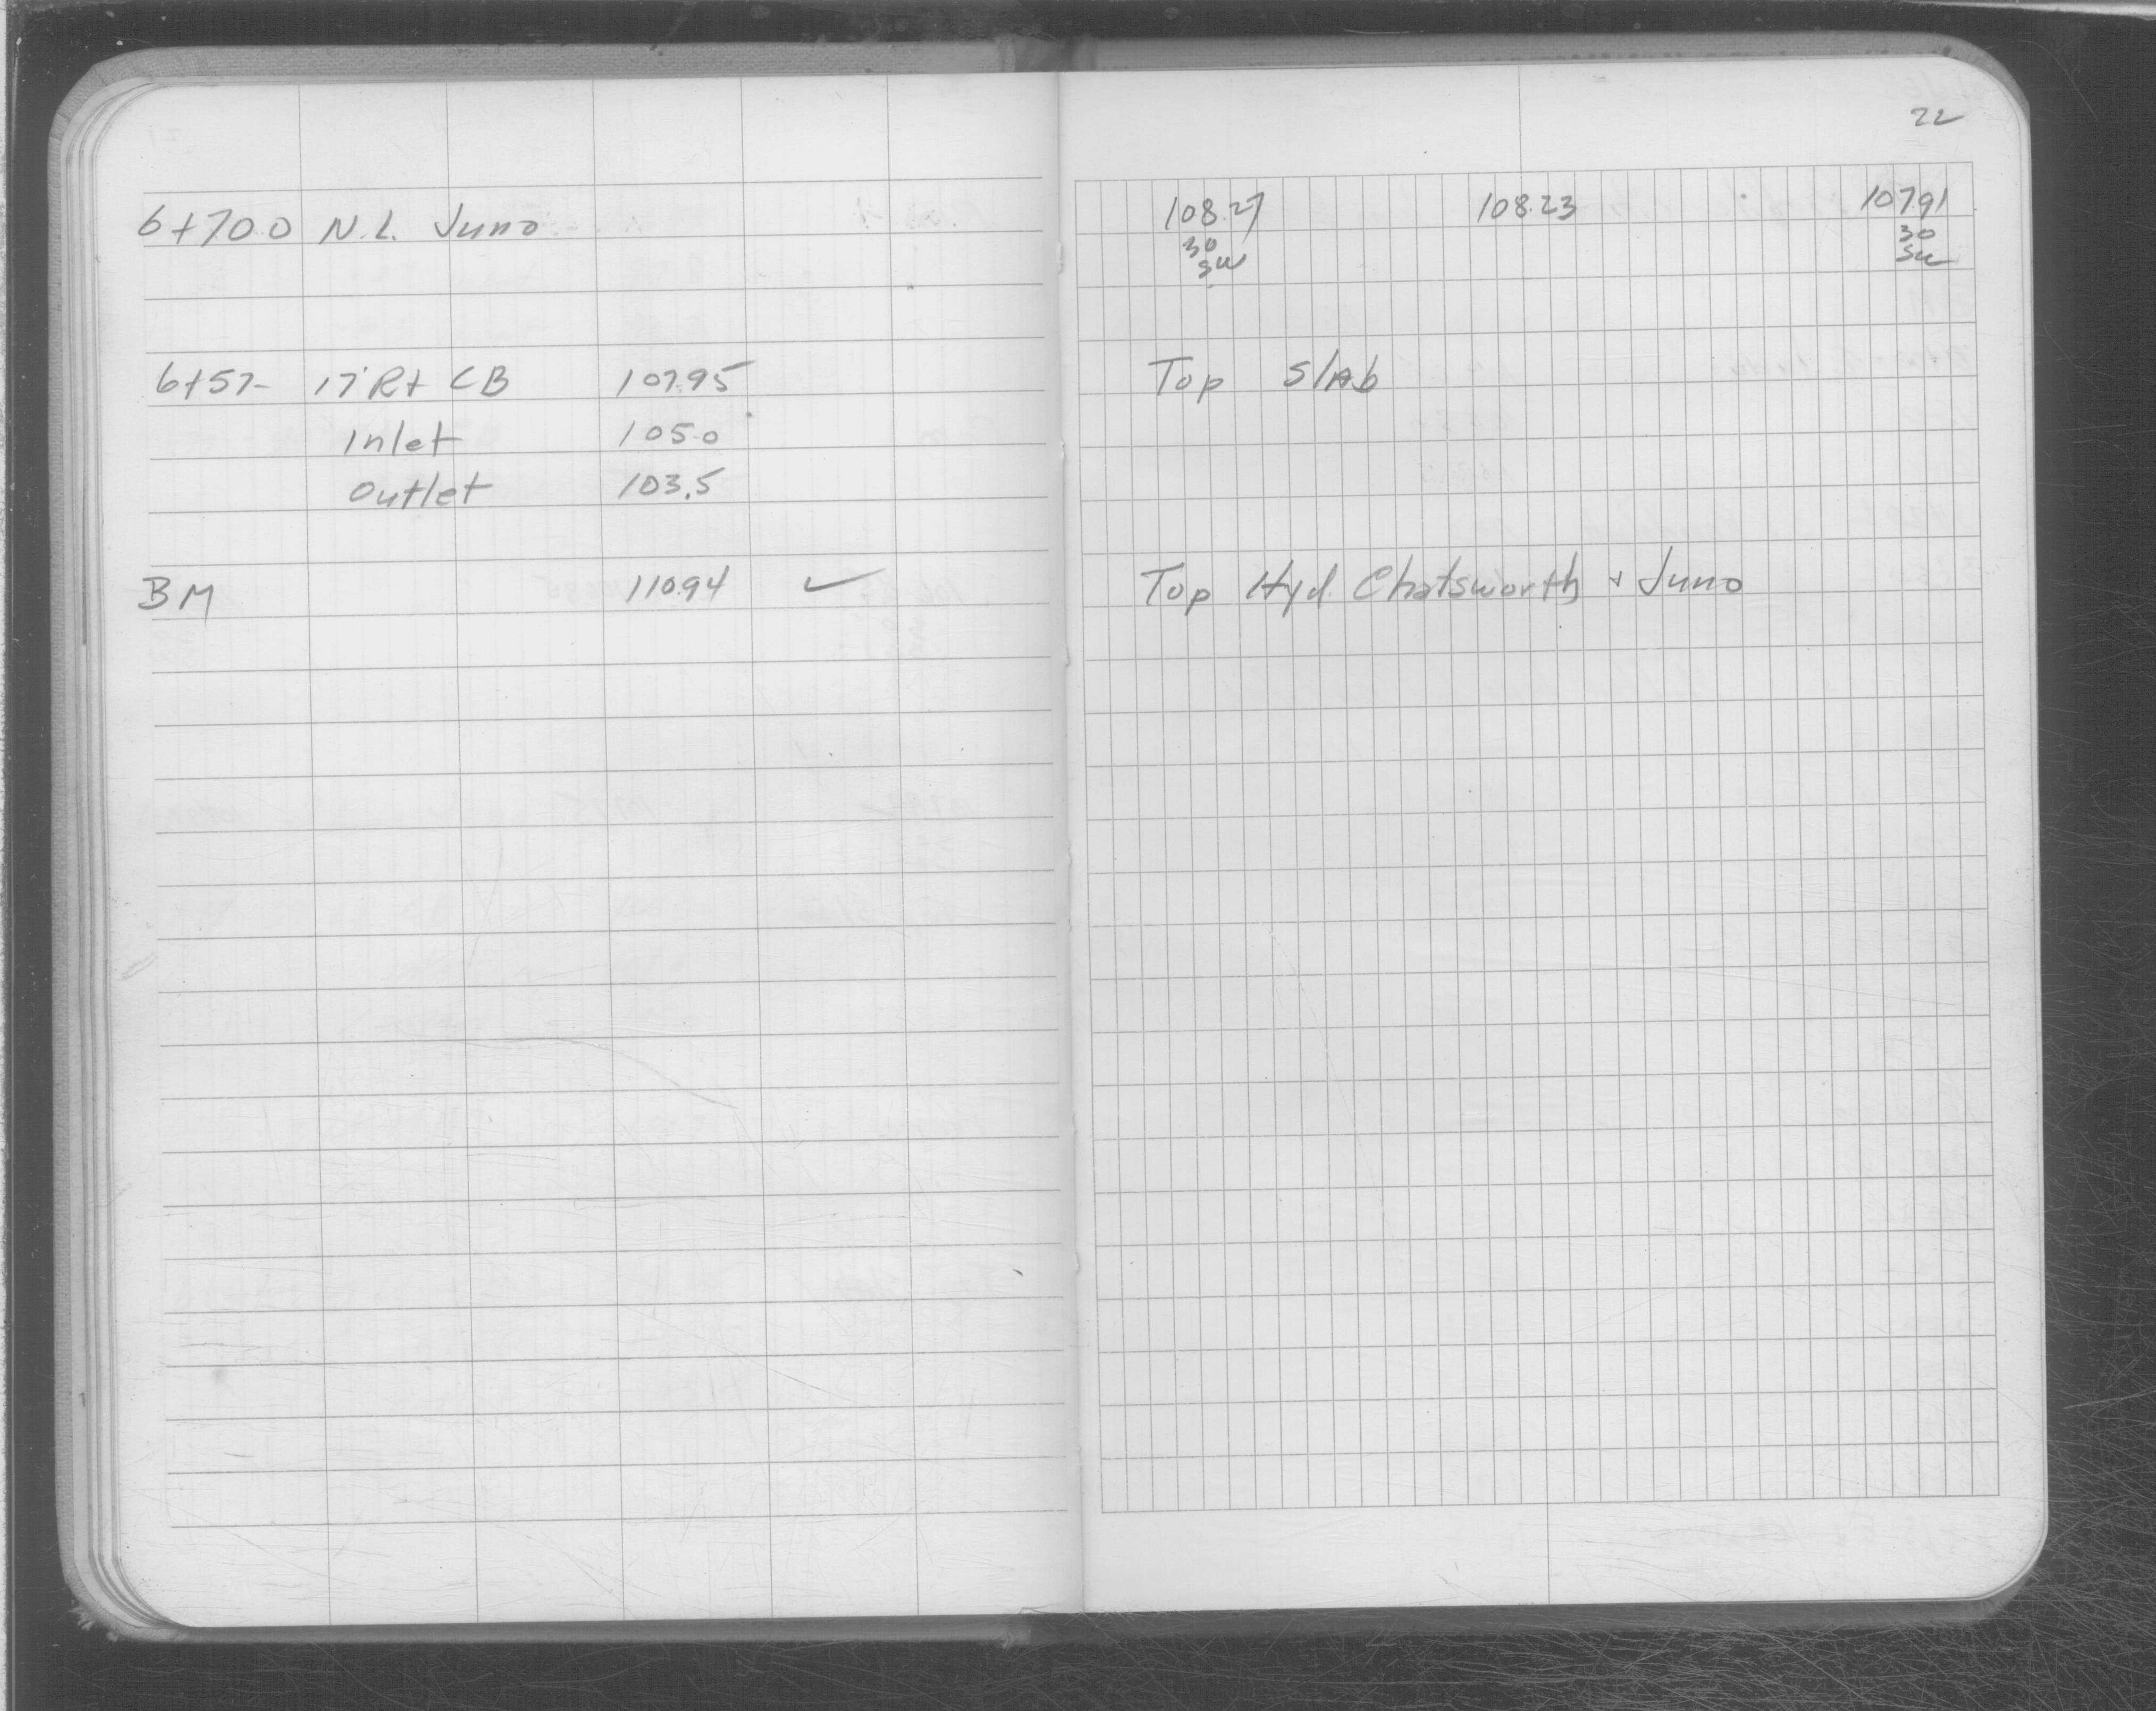 22
6+70.0 N.L. Juno 108.27 108.23 107.91
30 30
SW SW
6+57- 17' Rt CB 107.95 Top Slab
Inlet 105.0
Outlet 103.5
BM 110.94 ✓ Top Hyd. Chatsworth + Juno